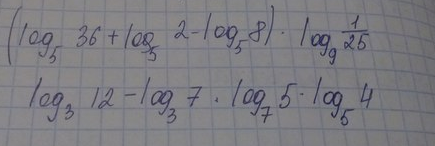 (log₅ 36 + log₅ 2 - log₅ 8) · log₉ 1/25
log₃ 12 - log₃ 7 · log₇ 5 · log₅ 4